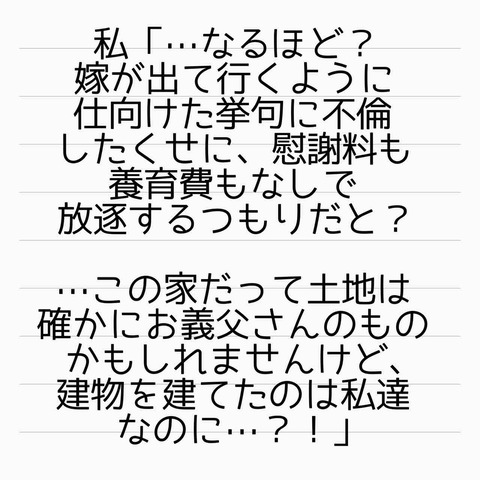 私「…なるほど？
嫁が出て行くように
仕向けた挙句に不倫
したくせに、慰謝料も
養育費もなしで
放逐するつもりだと？
…この家だって土地は
確かにお義父さんのもの
かもしれませんけど、
建物を建てたのは私達
なのに…？！」